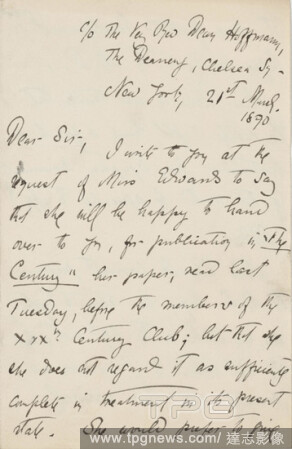 c/o The Very Revd Dean Hoffmann,
The Deanery, Chelsea Sq.
New York, 21st March.
1890
Dear Sir,
I write to you at the
request of Miss Edwards to say
that she will be happy to hand
over to you, for publication in "The
Century" her paper, read last
Tuesday, before the members of the
XIXth Century Club; but that she
she does not regard it as sufficiently
complete in treatment in its present
state. She would prefer to give
TPG
www.tpgnews.com / 達志影像